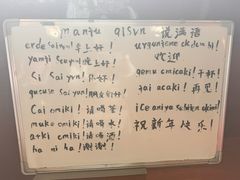 manju gisun 说满语
erde saiyun! 早上好!
yamji saiyun! 晚上好!
si saiyun! 你好!
gucuse saiyun! 朋友们好!
cai omiki! 请喝茶!
muke omiki! 请喝水!
arki omiki! 请喝酒!
ba ni ha! 谢谢!
urgunjeme okdombi!
欢迎
gemu omicaki! 干杯!
jai acaki! 再见!
ice aniya sebjen okini!
祝新年快乐!